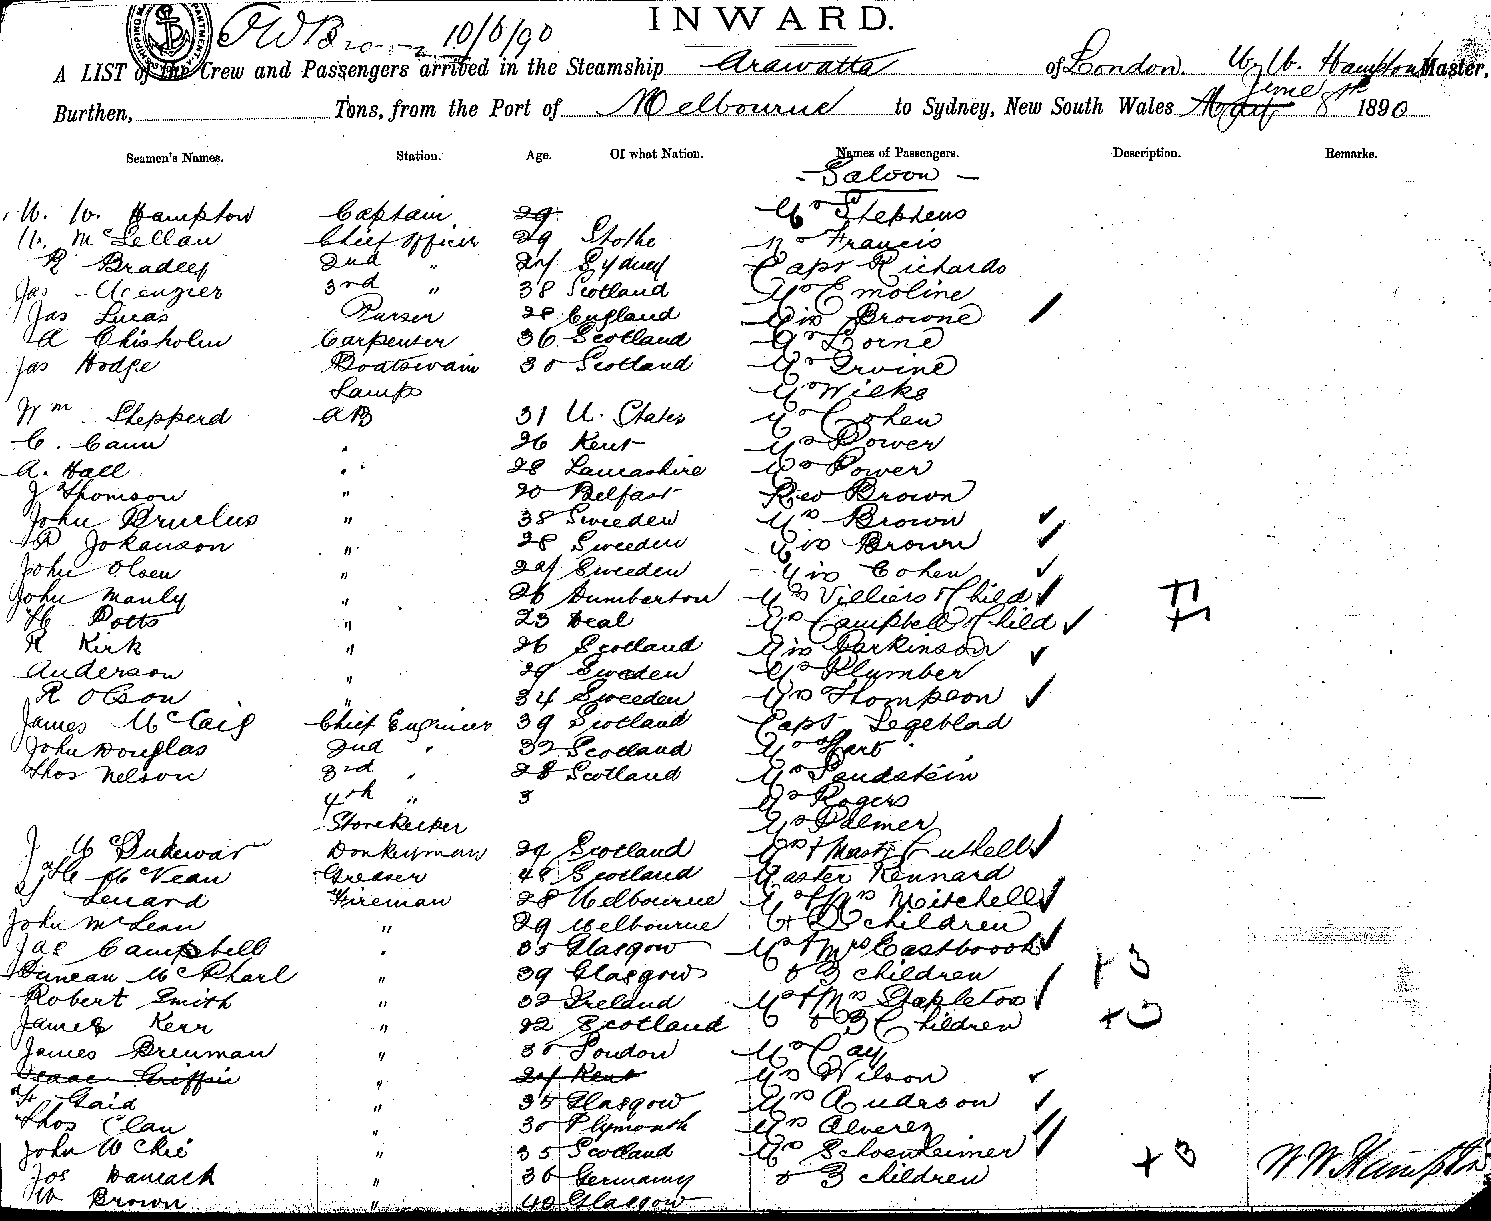 10/6/90
INWARD.
A LIST of the Crew and Passengers arrived in the Steamship Arawatta of London. W. W. Hampton Master,
Burthen, Tons, from the Port of Melbourne to Sydney, New South Wales June 8th 1890
Seamen's Names. Station. Age. Of what Nation. Names of Passengers. Description. Remarks.
- Saloon -
W. W. Hampton Captain 29 Mr Stephens
W. McLellan Chief Officer 29 Mr Francis
R Bradley 2nd " 27 Sydney Capt Richards
Jas 3rd " 38 Scotland Mr Emoline
Jas Lucas Purser 28 England Miss Browne
A Chisholm Carpenter 36 Scotland Mr Lorne
Jas Hodge Boatswain 30 Scotland Mr Irvine
Lamps Mr Wilks
Wm Shepperd AB 31 U. States Mr Cohen
C. Cann " 26 Kent Mr Power
A. Hall " 28 Lancashire Mr Power
J Thomson " 20 Belfast Rev Brown
John " 38 Sweeden Mrs Brown
Johanson " 28 Sweeden Miss Brown
John Olsen " 24 Sweeden Miss Cohen
John Manly " 26 Dumberton Mrs Villiers & Child
H Potts " 23 Deal Mrs Campbell & Child
R Kirk " 26 Scotland Miss Parkinson
Anderson " 29 Sweden Mr Plumber
R Olson " 34 Sweeden Mrs Thompson
James McCaig Chief Engineer 39 Scotland Capt Segeblad
John Douglas 2nd " 32 Scotland Mr Hart
Thos Nelson 3rd " 28 Scotland Mr Sandstein
4th " 3 Mr Rogers
Storekeeper Mr Palmer
J Donkeyman 29 Scotland Mrs & Mast
McVean Greaser 48 Scotland Master Kennard
Lenard Fireman 28 Melbourne Mr & Mrs Mitchell
John McLean " 29 Melbourne & 2 children
Jas Campbell " 35 Glasgow Mr & Mrs Eastbrook
Duncan McPharl " 39 Glasgow & 3 children +3
Robert Smith " 32 Ireland Mr & Mrs Stapleton
James Kerr " 22 Scotland & 3 Children +3
James Brennan " 30 London Mr Cay
Isaac Griffin " 24 Kent Mrs Wilson
Gaid " 35 Glasgow Mrs Anderson
Thos Clan " 30 Plymouth Mrs Alverez
John McKie " 35 Scotland Mrs Schoenheimer
Jos Hancock " 36 Germany & 3 children +3 W W Hampton
W Brown " 40 Glasgow